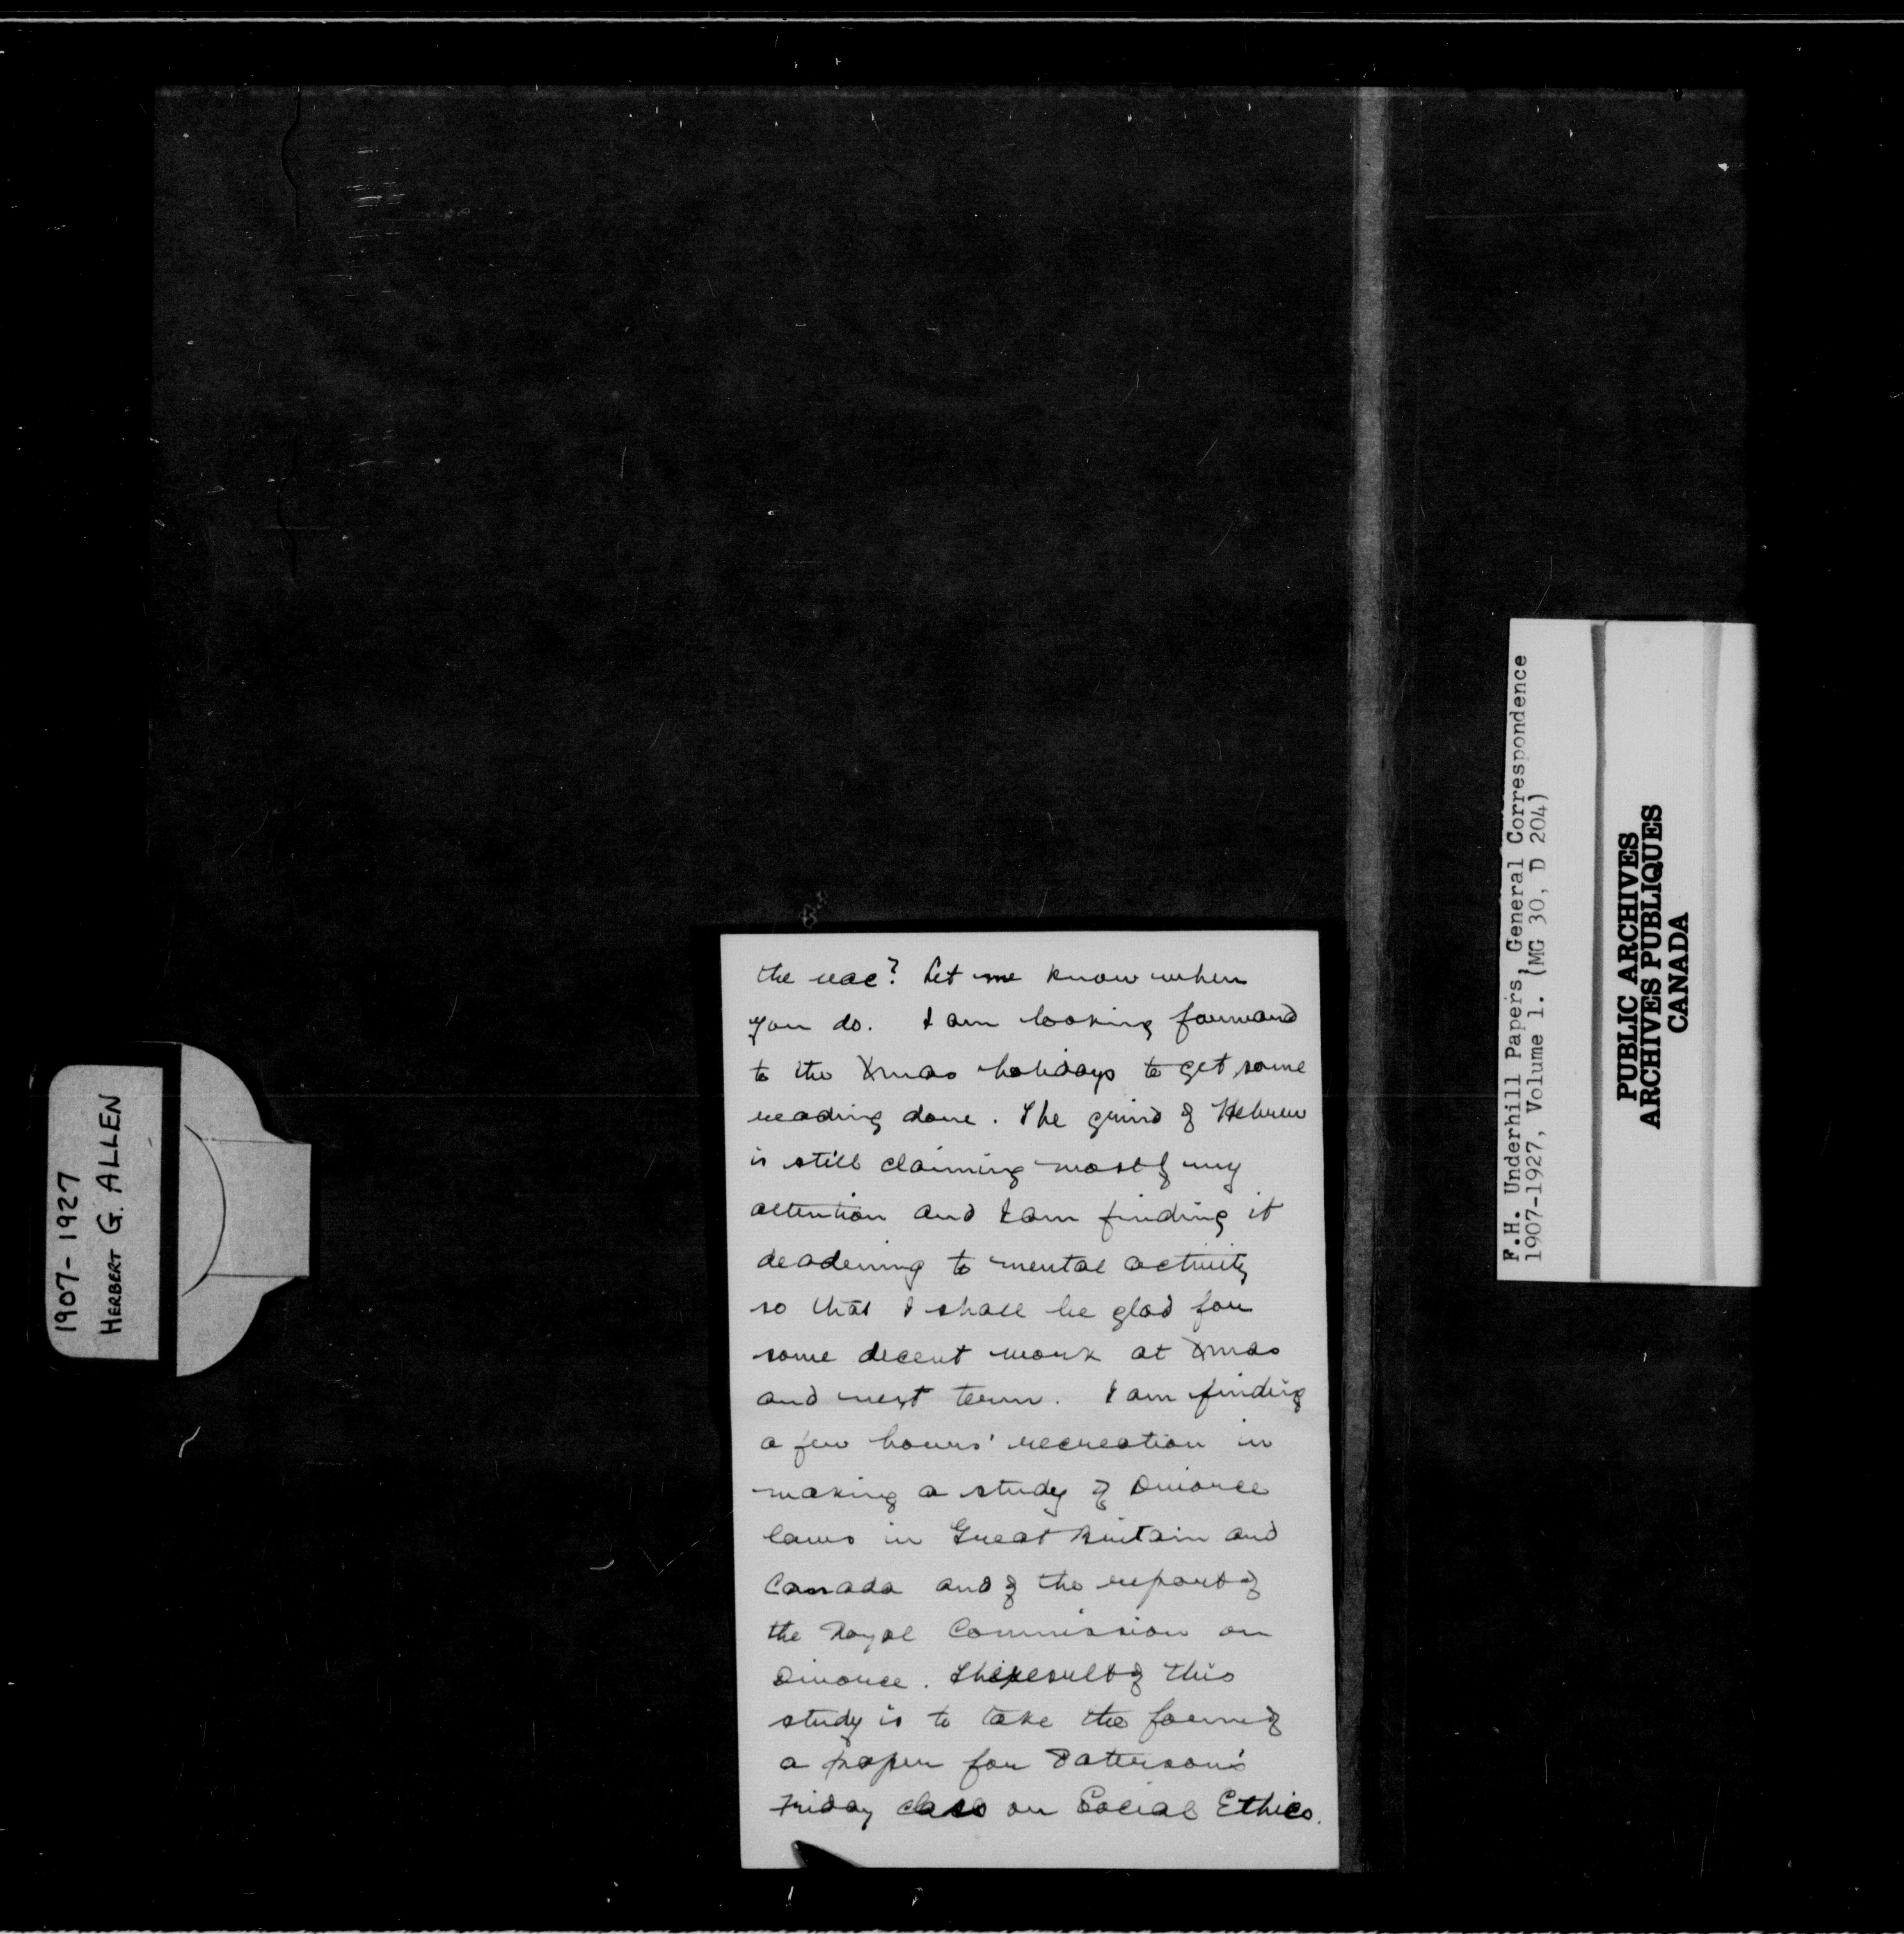 1907-1927
HERBERT G. ALLEN
the vac? Let me know when
you do. I am looking forward
to the Xmas holidays to get some
reading done. The grind of Hebrew
is still claiming most of my
attention and I am finding it
deadening to mental activity
so that I shall be glad for
some decent work at Xmas
and next term. I am finding
a few hours' recreation in
making a study of Divorce
laws in Great Britain and
Canada and of the report of
the Royal Commission on
Divorce. The result of this
study is to take the form of
a paper for Patterson's
Friday class on Social Ethics.
F.H. Underhill Papers, General Correspondence
1907-1927, Volume 1. (MG 30, D 204)
PUBLIC ARCHIVES
ARCHIVES PUBLIQUES
CANADA